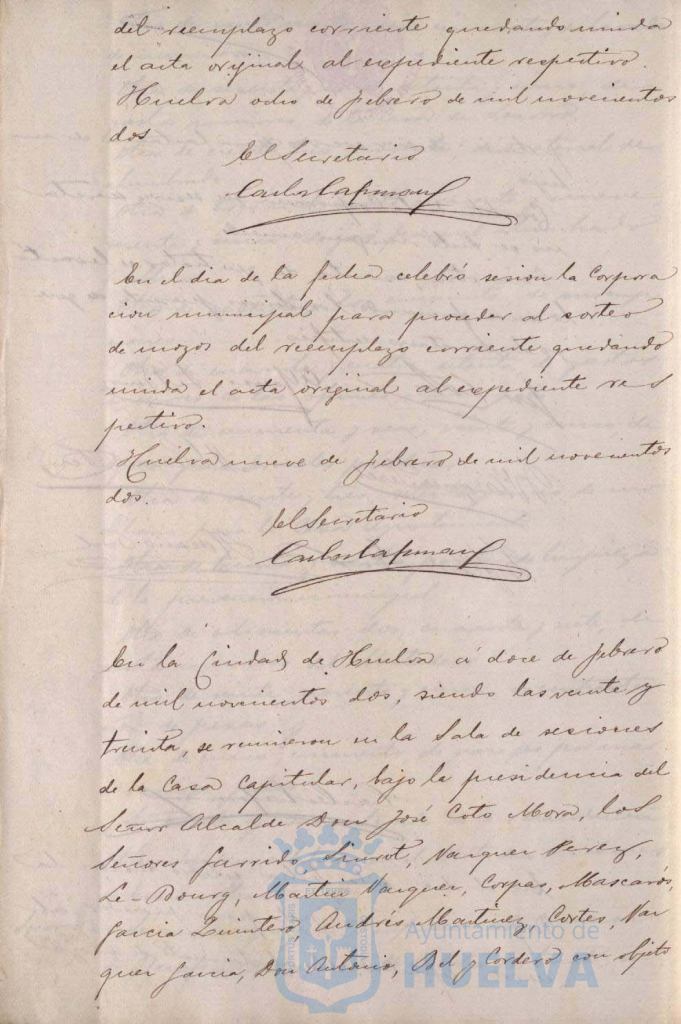 del reemplazo corriente quedando unida
el acta original al expediente respectivo.
Huelva ocho de febrero de mil novecientos
dos
El Secretario
En el dia de la fecha celebró sesion la Corpora
cion municipal para proceder al sorteo
de mozos del reemplazo corriente quedando
unida el acta original al expediente res
pectivo.
Huelva nueve de febrero de mil novecientos
dos.
El Secretario
En la Ciudad de Huelva á doce de febrero
de mil novecientos dos, siendo las veinte y
treinta, se reunieron en la Sala de sesiones
de la Casa Capitular, bajo la presidencia del
Señor Alcalde Don José Coto Mora, los
Señores Garrido, Siurot, Vazquez Perez,
Le-Bourg, Martin Vazquez, Corpas, Mascarós,
Garcia Quintero, Andrés Martinez, Cortes, Vaz
quez Garcia, Don Antonio, Bel y Cordero con objeto
Ayuntamiento de
HUELVA